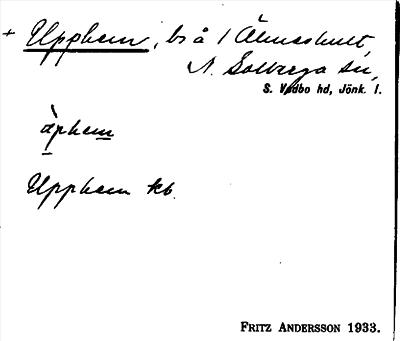 + Upphem, bs å 1 Älmeshult,
N. Solberga sn,
S. Vedbo hd, Jönk. l.
àphem
Upphem kb.
FRITZ ANDERSSON 1933.